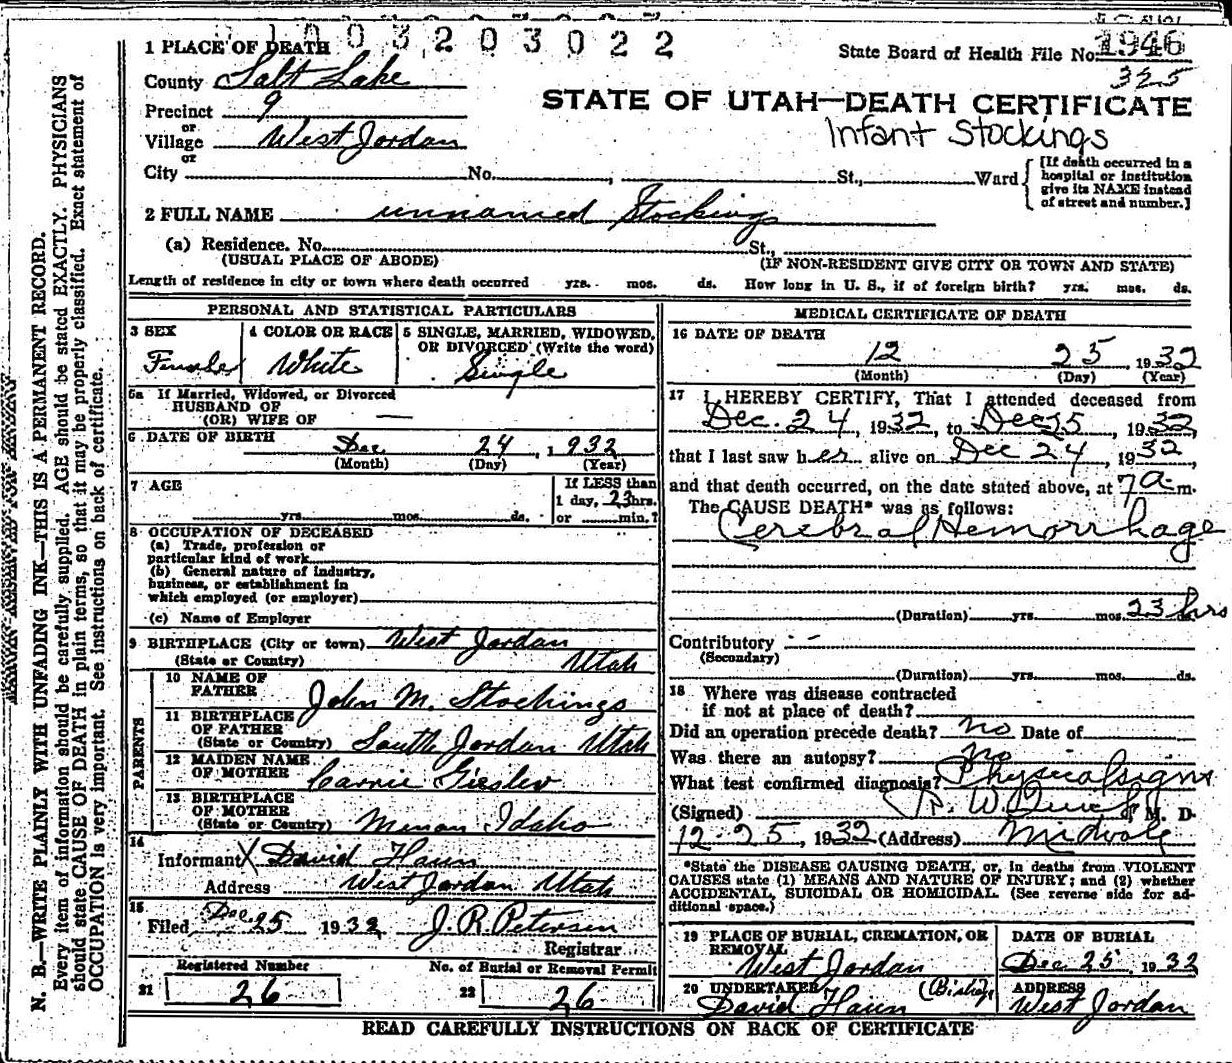 1003203022
1 PLACE OF DEATH
State Board of Health File No. 1946
County Salt Lake
325
Precinct 9
STATE OF UTAH—DEATH CERTIFICATE
or
Village West Jordan
Infant Stockings
or
City No. , St., Ward
[If death occurred in a
hospital or institution
give its NAME instead
of street and number.]
2 FULL NAME unnamed Stockings
(a) Residence. No. St.,
(USUAL PLACE OF ABODE) (IF NON-RESIDENT GIVE CITY OR TOWN AND STATE)
Length of residence in city or town where death occurred yrs. mos. ds. How long in U. S., if of foreign birth? yrs. mos. ds.
PERSONAL AND STATISTICAL PARTICULARS
3 SEX
Female
4 COLOR OR RACE
White
5 SINGLE, MARRIED, WIDOWED,
OR DIVORCED (Write the word)
Single
5a If Married, Widowed, or Divorced
HUSBAND OF
(OR) WIFE OF —
6 DATE OF BIRTH
Dec 24, 1932
(Month) (Day) (Year)
7 AGE
yrs. mos. ds.
If LESS than
1 day, 23 hrs.
or min.?
8 OCCUPATION OF DECEASED
(a) Trade, profession or
particular kind of work
(b) General nature of industry,
business, or establishment in
which employed (or employer)
(c) Name of Employer
9 BIRTHPLACE (City or town) West Jordan
(State or Country) Utah
PARENTS
10 NAME OF
FATHER John M. Stockings
11 BIRTHPLACE
OF FATHER
(State or Country) South Jordan Utah
12 MAIDEN NAME
OF MOTHER Carrie
13 BIRTHPLACE
OF MOTHER
(State or Country) Menan Idaho
14
Informant X David Haun
Address West Jordan Utah
15
Filed Dec 25 1932 J. R. Petersen
Registrar
Registered Number
21 26
No. of Burial or Removal Permit
22 26
MEDICAL CERTIFICATE OF DEATH
16 DATE OF DEATH
12 25 1932
(Month) (Day) (Year)
17 I HEREBY CERTIFY, That I attended deceased from
Dec. 24, 1932, to Dec 25, 1932,
that I last saw her alive on Dec 24, 1932,
and that death occurred, on the date stated above, at 7 a m.
The CAUSE DEATH* was as follows:
Cerebral Hemorrhage
(Duration) yrs. mos. 23 hrs ds.
Contributory - -
(Secondary)
(Duration) yrs. mos. ds.
18 Where was disease contracted
if not at place of death?
Did an operation precede death? no Date of
Was there an autopsy? no
What test confirmed diagnosis? Physical signs
(Signed) R. W. M. D.
12-25, 1932 (Address) Midvale
*State the DISEASE CAUSING DEATH, or, in deaths from VIOLENT
CAUSES state (1) MEANS AND NATURE OF INJURY; and (2) whether
ACCIDENTAL, SUICIDAL OR HOMICIDAL. (See reverse side for ad-
ditional space.)
19 PLACE OF BURIAL, CREMATION, OR
REMOVAL
West Jordan
DATE OF BURIAL
Dec 25 1932
20 UNDERTAKER (Bishop)
David Haun
ADDRESS
West Jordan
READ CAREFULLY INSTRUCTIONS ON BACK OF CERTIFICATE
N. B.—WRITE PLAINLY WITH UNFADING INK—THIS IS A PERMANENT RECORD.
Every item of information should be carefully supplied. AGE should be stated EXACTLY. PHYSICIANS
should state CAUSE OF DEATH in plain terms, so that it may be properly classified. Exact statement of
OCCUPATION is very important. See instructions on back of certificate.